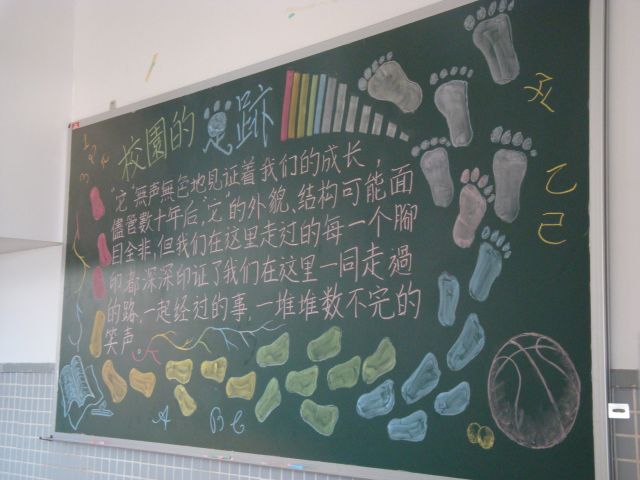 校園的足跡
"它"無声無色地见证着我们的成长，
儘管数十年后,"它"的外貌、结构可能面
目全非,但我们在这里走过的每一个腳
印,都深深印证了我们在这里一同走過
的路,一起经过的事,一堆堆数不完的
笑声。
乙
己
A B C